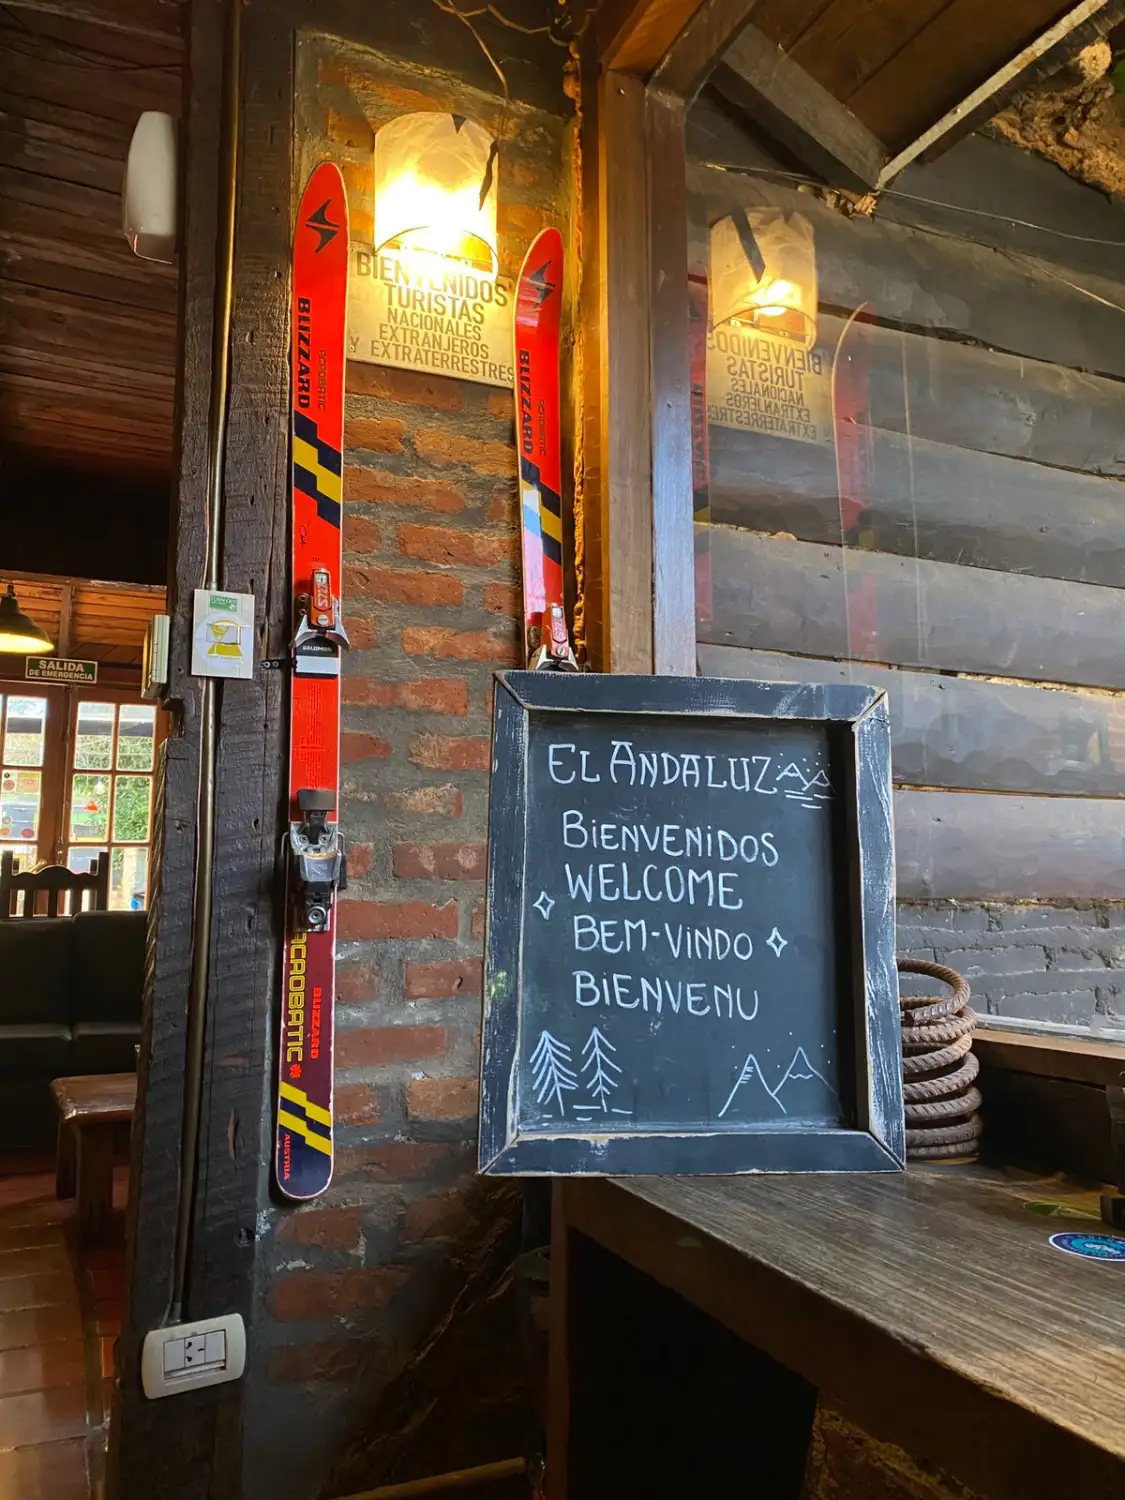 BIENVENIDOS
TURISTAS
NACIONALES
EXTRANJEROS
Y EXTRATERRESTRES
BLIZZARD
ACROBATIC
BLIZZARD
ACROBATIC
SALOMON
ACROBATIC
BLIZZARD
AUSTRIA
SALIDA
DE EMERGENCIA
EL ANDALUZ
BIENVENIDOS
WELCOME
BEM-VINDO
BIENVENU
BIENVENIDOS
TURISTAS
NACIONALES
EXTRANJEROS
EXTRATERRESTRE